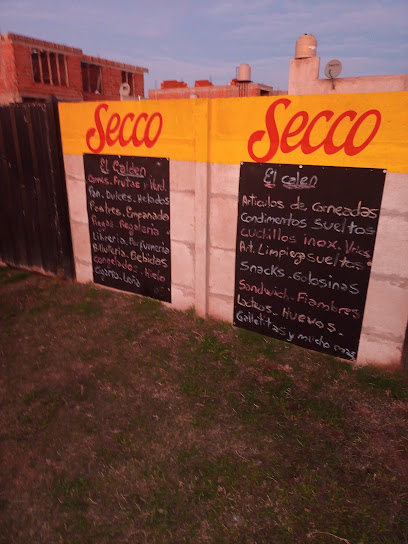 Secco
El Calden
Carnes - Frutas y Verd.
Pan. Dulces - Helados
Postres. Empanadas
Regaleria
Libreria. Perfumeria
Bebidas
congelados - Hielo
Carbon - Leña
Secco
El calen
Articulos de carneadas
Condimentos Sueltos
Cuchillos inox.
Art. Limpieza sueltos
Snacks - Golosinas
Sandwich - Fiambres
Lacteos - Huevos -
Galletitas y mucho mas